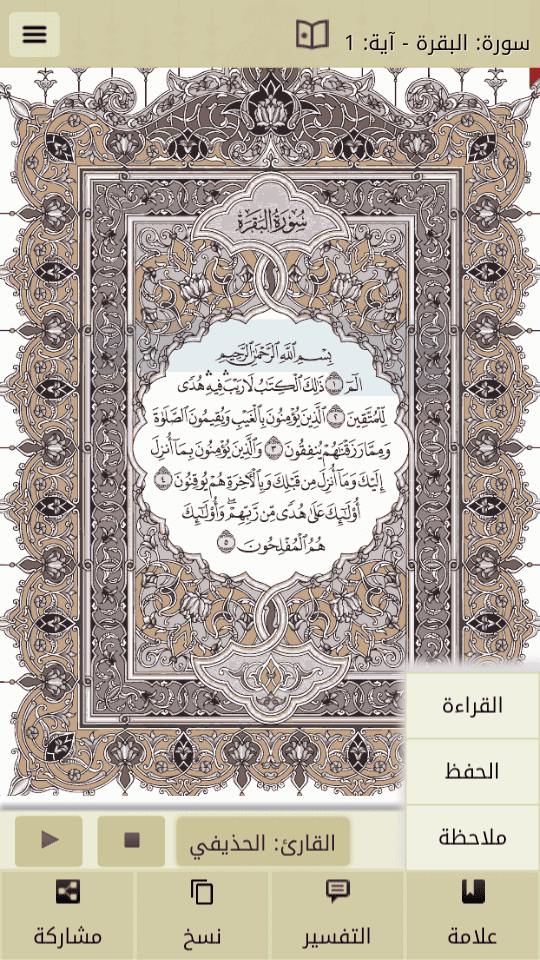 سورة: البقرة - آية: 1
سُورَةُ البَقَرَةِ
بِسْمِ اللَّهِ الرَّحْمَٰنِ الرَّحِيمِ
الٓمٓ ١ ذَٰلِكَ الْكِتَٰبُ لَا رَيْبَ ۛ فِيهِ ۛ هُدًى
لِّلْمُتَّقِينَ ٢ الَّذِينَ يُؤْمِنُونَ بِالْغَيْبِ وَيُقِيمُونَ الصَّلَوٰةَ
وَمِمَّا رَزَقْنَٰهُمْ يُنفِقُونَ ٣ وَالَّذِينَ يُؤْمِنُونَ بِمَآ أُنزِلَ
إِلَيْكَ وَمَآ أُنزِلَ مِن قَبْلِكَ وَبِالْآخِرَةِ هُمْ يُوقِنُونَ ٤
أُو۟لَٰٓئِكَ عَلَىٰ هُدًى مِّن رَّبِّهِمْ ۖ وَأُو۟لَٰٓئِكَ
هُمُ الْمُفْلِحُونَ ٥
القراءة
الحفظ
ملاحظة
القارئ: الحذيفي
علامة
التفسير
نسخ
مشاركة